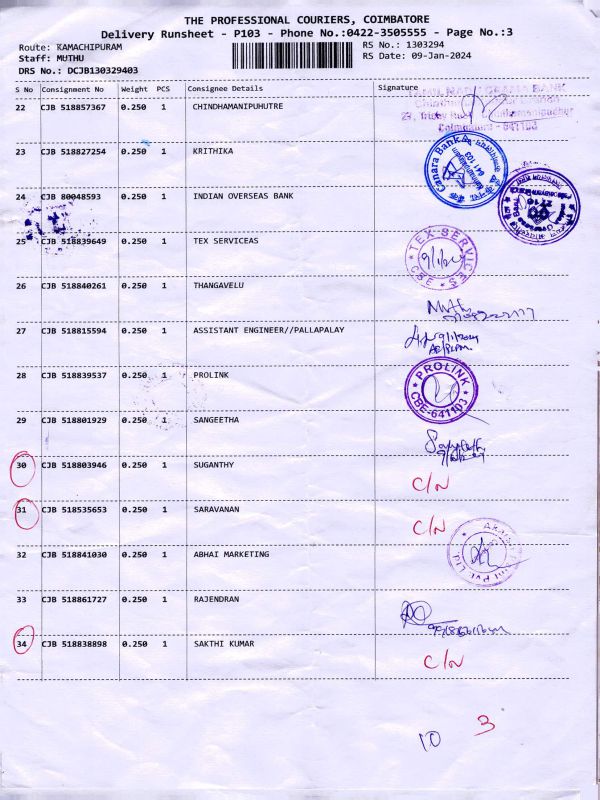 THE PROFESSIONAL COURIERS, COIMBATORE
Delivery Runsheet - P103 - Phone No.:0422-3505555 - Page No.:3
Route: KAMACHIPURAM RS No.: 1303294
Staff: MUTHU RS Date: 09-Jan-2024
DRS No.: DCJB130329403
S No Consignment No Weight PCS Consignee Details Signature
22 CJB 518857367 0.250 1 CHINDHAMANIPUHUTRE
23 CJB 518827254 0.250 1 KRITHIKA
Canara Bank
641 103
24 CJB 80048593 0.250 1 INDIAN OVERSEAS BANK
25 CJB 518839649 0.250 1 TEX SERVICEAS
TEX-SERVICES
CBE
9/1/24
26 CJB 518840261 0.250 1 THANGAVELU
27 CJB 518815594 0.250 1 ASSISTANT ENGINEER//PALLAPALAY
28 CJB 518839537 0.250 1 PROLINK
PROLINK
CBE-641103
29 CJB 518801929 0.250 1 SANGEETHA
30 CJB 518803946 0.250 1 SUGANTHY C/N
31 CJB 518535653 0.250 1 SARAVANAN C/N
32 CJB 518841030 0.250 1 ABHAI MARKETING
Pvt. Ltd.
33 CJB 518861727 0.250 1 RAJENDRAN
34 CJB 518838898 0.250 1 SAKTHI KUMAR C/N
10 3